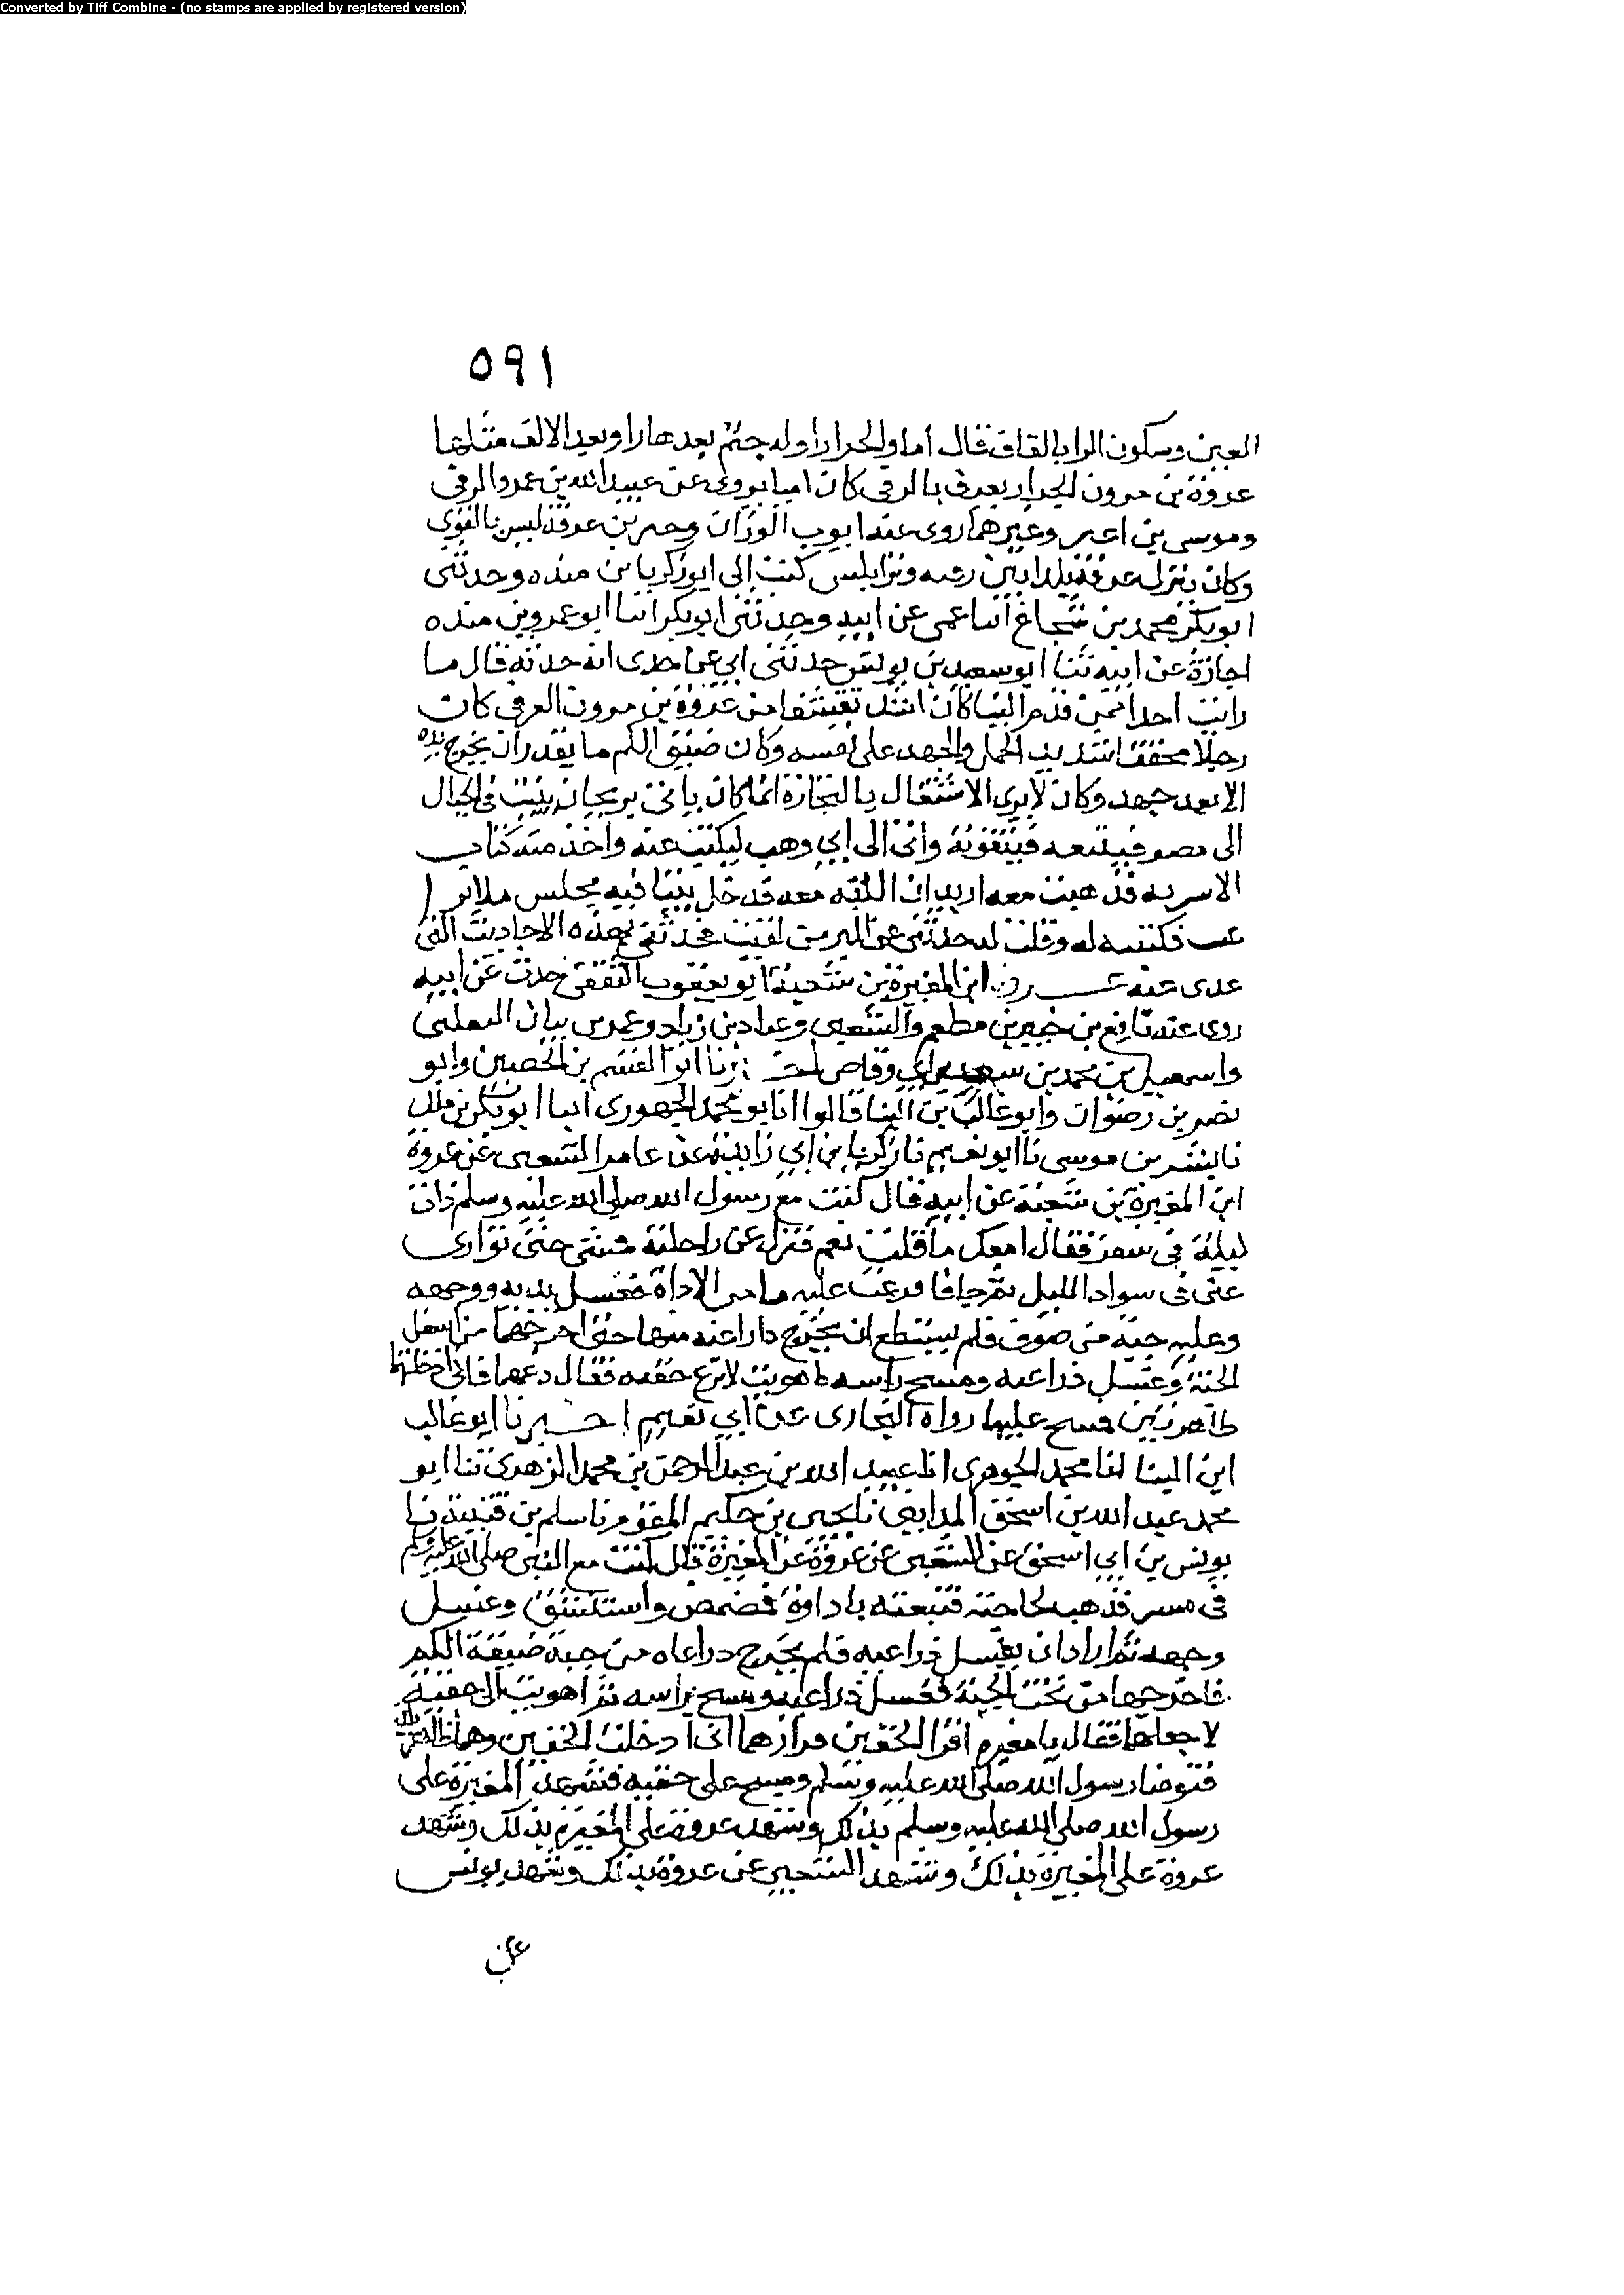 Converted by Tiff Combine - (no stamps are applied by registered version)
٥٩١
العين وسكون الرا بالقاف فقال اما والجرار اوله جيم بعدها را وبعد الالف مثلها
عروة بن مرون الجرار يعرف بالرقى كان اميا يروى عن عبيد الله بن عمرو الرقى
وموسى بن اعين وغيرهما روى عنه ايوب الوزان وعرقة ليس بالقوى
وكان ينزل عرقة بلدا بين وترابلس كتب الى ابو زكريا بن منده وحدثنى
ابو بكر محمد بن شجاع انا عمى عن ابيه وحدثنى ابو بكر انا ابو عمرو بن منده
اجازة عن ابيه ثنا ابو سعيد بن يونس حدثنى ابى عن جدى انه حدثه قال ما
رايت احدا ممن قدم الينا كان اشد تقشفا من عروة بن مرون العرقى كان
رجلا مخففا شديد الحمل والجهد على نفسه وكان ضيق الكم ما يقدر ان يخرج يده
الا بعد جهد وكان لا يرى الاشتغال بالتجارة انما كان ياتى ينبت فى الجبال
الى مصر فيبيعه فيتقوته واتى الى ابى وهب ليكتب عنه واخذ منه كتاب
الاسربه فذهبت معه اريد ان اكتبه معه فدخل بيتا فيه مجلس ملاتر
فكتبه له وقلت له حدثنى عن اكبر من لقيت فحدثنى بهذه الاحاديث التى
عدى عنه ابن المغيرة بن شعبة ابو يعقوب الثقفى حدث عن ابيه
روى عنه نافع بن جبير بن مطعم والشعبى وعباد بن زياد وعمر بن بيان التغلبى
واسمعيل بن محمد بن سعد بن ابى وقاص انا ابو القسم بن الحصين وابو
نصر بن رضوان وابو غالب بن البنا قالوا انا ابو محمد الجهورى انبا ابو بكر بن ملك
نا بشر بن موسى نا ابو نعيم نا زكريا بن ابى زايدة عن عامر الشعبى عن عروة
ابن المغيرة بن شعبة عن ابيه قال كنت مع رسول الله صلى الله عليه وسلم ذات
ليلة فى سفر فقال امعك ما قلت نعم فنزل عن راحلته فمشى حتى توارى
عنى فى سواد الليل ثم جا فافرغت عليه ما من الاداة فغسل يديه ووجهه
وعليه جبة من صوف فلم يستطع ان يخرج ذراعيه منها حتى اخرجهما من اسفل
الجبة وغسل ذراعيه ومسح راسه فاهويت لانزع خفيه فقال دعهما فانى ادخلتهما
طاهرتين فمسح عليهما رواه البخارى عن ابى نعيم اخبرنا ابو غالب
ابن البنا انا محمد الجوهرى انا عبيد الله بن عبد الرحمن بن محمد الزهرى ثنا ابو
محمد عبد الله بن اسحق المدايني نا يحيى بن حكيم المقوم نا سلم بن قتيبة نا
يونس بن ابى اسحق عن الشعبى عن عروة عن المغيرة قال كنت مع النبى صلى الله عليه وسلم
فى مسير فذهب لحاجته فتبعته باداوة فمضمض واستنشق وغسل
وجهه ثم اراد ان يغسل ذراعيه فلم يخرج ذراعاه من جبة ضيقة الكم
فاخرجهما من تحت الجبة فغسل ذراعيه ومسح براسه ثم اهويت الى خفيه
لا جعلهما فقال يا مغيرة اقر الخفين قرارهما انى ادخلت الخفين وهما طاهرتان
فتوضا رسول الله صلى الله عليه وسلم ومسح على خفيه فشهد المغيرة على
رسول الله صلى الله عليه وسلم بذلك وشهد عروة على المغيرة بذلك وشهد
عروة على المغيرة بذلك وشهد الشعبى عن عروة بذلك وشهد يونس
عن